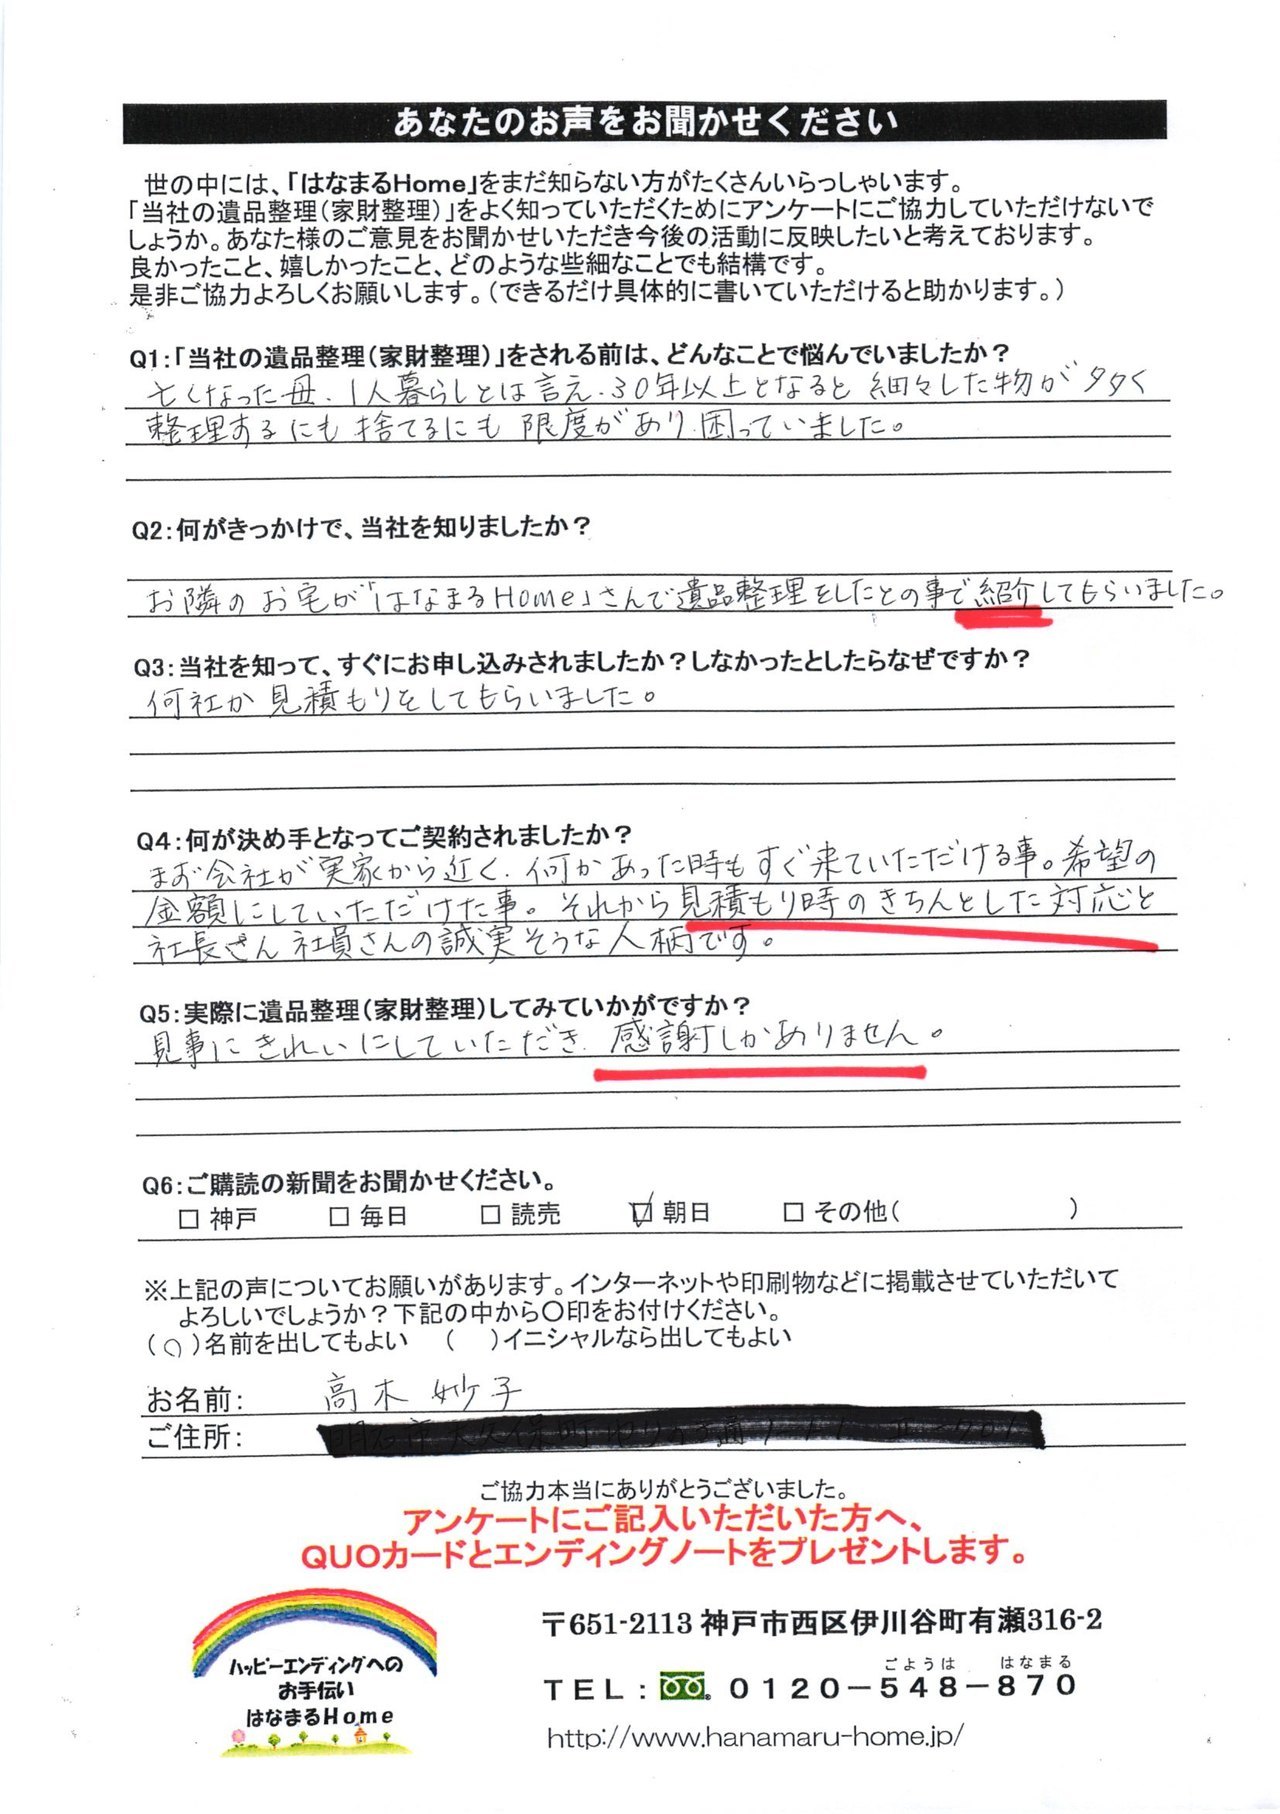 あなたのお声をお聞かせください
世の中には、「はなまるHome」をまだ知らない方がたくさんいらっしゃいます。
「当社の遺品整理(家財整理)」をよく知っていただくためにアンケートにご協力していただけないで
しょうか。あなた様のご意見をお聞かせいただき今後の活動に反映したいと考えております。
良かったこと、嬉しかったこと、どのような些細なことでも結構です。
是非ご協力よろしくお願いします。(できるだけ具体的に書いていただけると助かります。)
Q1:「当社の遺品整理(家財整理)」をされる前は、どんなことで悩んでいましたか?
亡くなった母、1人暮らしとは言え、30年以上となると細々した物が多く
整理するにも捨てるにも限度があり、困っていました。
Q2:何がきっかけで、当社を知りましたか?
お隣のお宅が「はなまるHome」さんで遺品整理をしたとの事で紹介してもらいました。
Q3:当社を知って、すぐにお申し込みされましたか?しなかったとしたらなぜですか?
何社か見積もりをしてもらいました。
Q4:何が決め手となってご契約されましたか?
まず会社が実家から近く、何かあった時もすぐ来ていただける事。希望の
金額にしていただけた事。それから見積もり時のきちんとした対応と
社長さん社員さんの誠実そうな人柄です。
Q5:実際に遺品整理(家財整理)してみていかがですか?
見事にきれいにしていただき、感謝しかありません。
Q6:ご購読の新聞をお聞かせください。
□ 神戸 □ 毎日 □ 読売 ☑ 朝日 □ その他( )
※上記の声についてお願いがあります。インターネットや印刷物などに掲載させていただいて
よろしいでしょうか?下記の中から〇印をお付けください。
(○)名前を出してもよい ( )イニシャルなら出してもよい
お名前: 高木 妙子
ご住所:
ご協力本当にありがとうございました。
アンケートにご記入いただいた方へ、
QUOカードとエンディングノートをプレゼントします。
ハッピーエンディングへの
お手伝い
はなまるHome
〒651-2113 神戸市西区伊川谷町有瀬316-2
ごようは はなまる
TEL: 0120-548-870
http://www.hanamaru-home.jp/